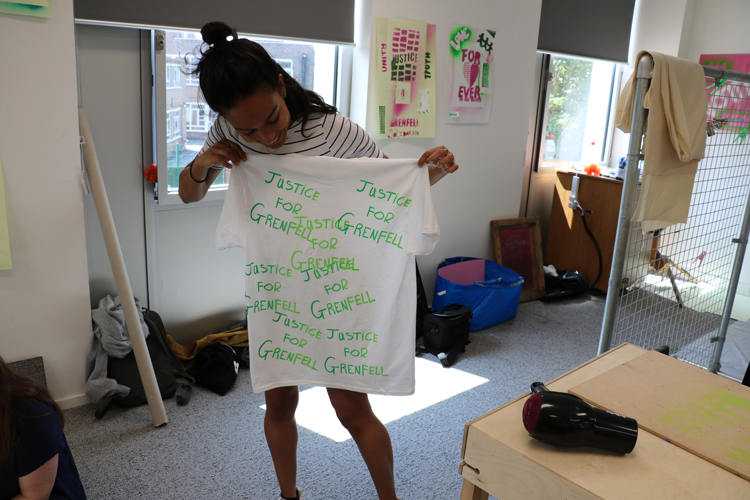 JUSTICE
FOR
GRENFELL
JUSTICE
FOR
GRENFELL
JUSTICE
FOR
GRENFELL
JUSTICE
FOR
GRENFELL
JUSTICE
FOR
GRENFELL
JUSTICE
FOR
GRENFELL
JUSTICE
FOR
GRENFELL
UNITY
JUSTICE
TRUTH
GRENFELL
FOR
EVER